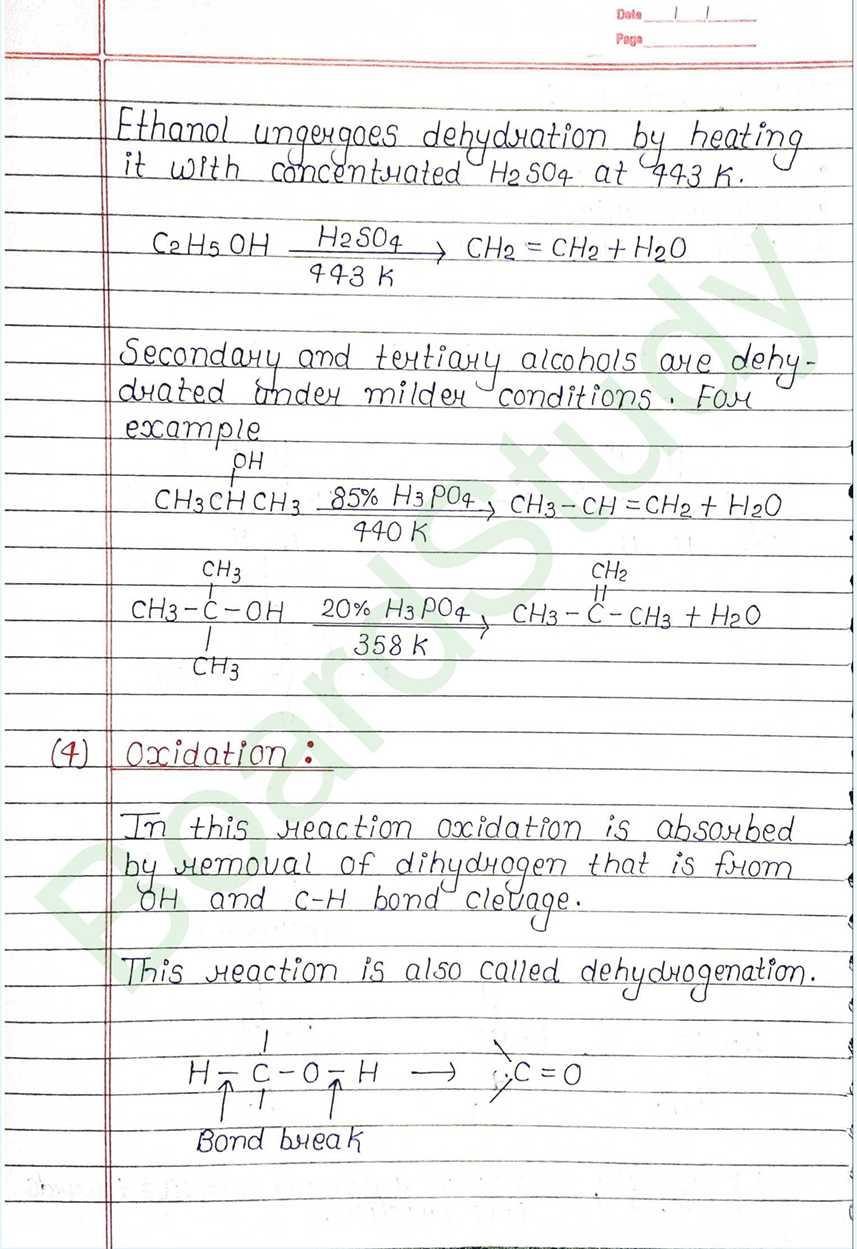 Date / /
Page
Ethanol ungergoes dehydration by heating
it with concentrated H2SO4 at 443 K.
C2H5OH H2SO4 → CH2 = CH2 + H2O
443 K
Secondary and tertiary alcohols are dehy-
drated under milder conditions. For
example
OH
CH3CHCH3 85% H3PO4 → CH3-CH=CH2 + H2O
440 K
CH3 CH2
CH3-C-OH 20% H3PO4 → CH3-C-CH3 + H2O
358 K
CH3
(4) Oxidation:
In this reaction oxidation is absorbed
by removal of dihydrogen that is from
OH and C-H bond clevage.
This reaction is also called dehydrogenation.
H-C-O-H → C=O
Bond break
BoardStudy